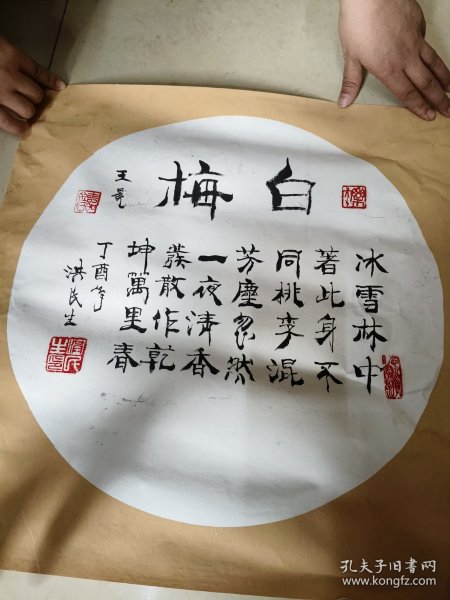 白梅
王冕
冰雪林中
著此身不
同桃李混
芳塵忽然
一夜清香
發散作乾
坤萬里春
丁酉年
洪民生
孔夫子旧书网
www.kongfz.com